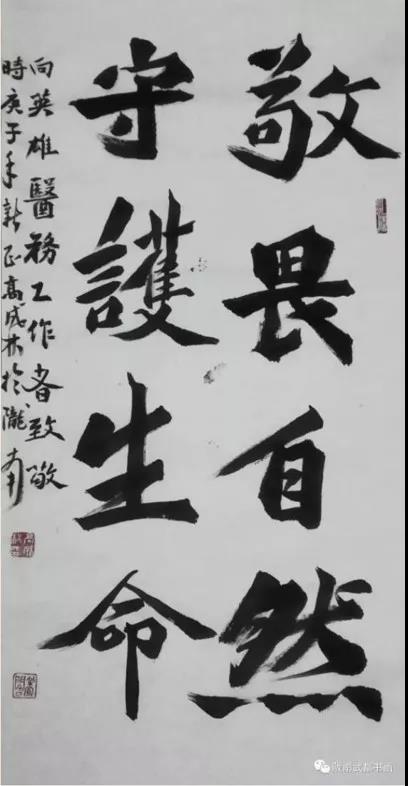 敬畏自然
守護生命
向英雄醫務工作者致敬
時庚子年新正高成林於隴南